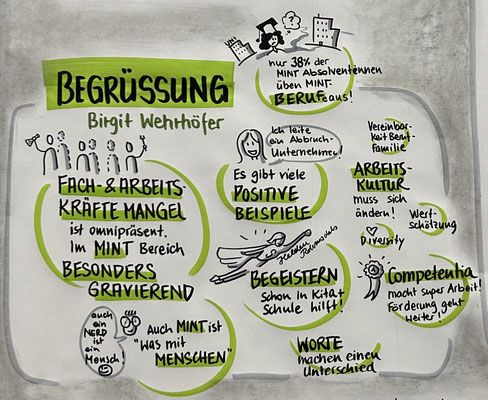 BEGRÜSSUNG
Birgit Wehrhöfer
nur 38% der
MINT Absolventinnen
üben MINT-
BERUFe aus!
FACH- & ARBEITS-
KRÄFTE MANGEL
ist omnipräsent.
Im MINT Bereich
BESONDERS
GRAVIEREND
auch
ein
NERD
ist
ein
Mensch!
Auch MINT ist
"Was mit
MENSCHEN"
Ich leite
ein Abbruch-
Unternehmen!
Es gibt viele
POSITIVE
BEISPIELE
Helden
BEGEISTERN
schon in Kita &
Schule hilft!
WORTE
machen einen
Unterschied
Vereinbar-
keit Beruf-
Familie
ARBEITS-
KULTUR
muss sich
ändern!
Wert-
schätzung
Diversity
Competentia
macht super Arbeit!
Förderung geht
weiter!